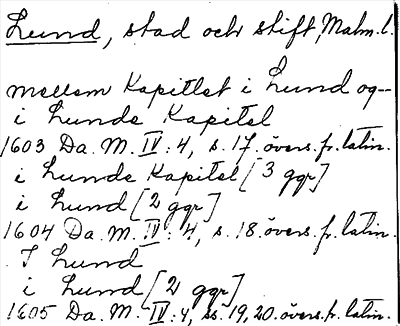 Lund, stad och stift, Malm. l.
mellem Kapitlet i Lund og--
i Lunde Kapitel
1603 Da. M. IV: 4, s. 17. övers. fr. latin.
i Lunde Kapitel [3 ggr]
i Lund [2 ggr]
1604 Da. M. IV: 4, s. 18. övers. fr. latin.
I Lund
i Lund [2 ggr]
1605 Da. M. IV: 4, ss. 19, 20. övers. fr. latin.